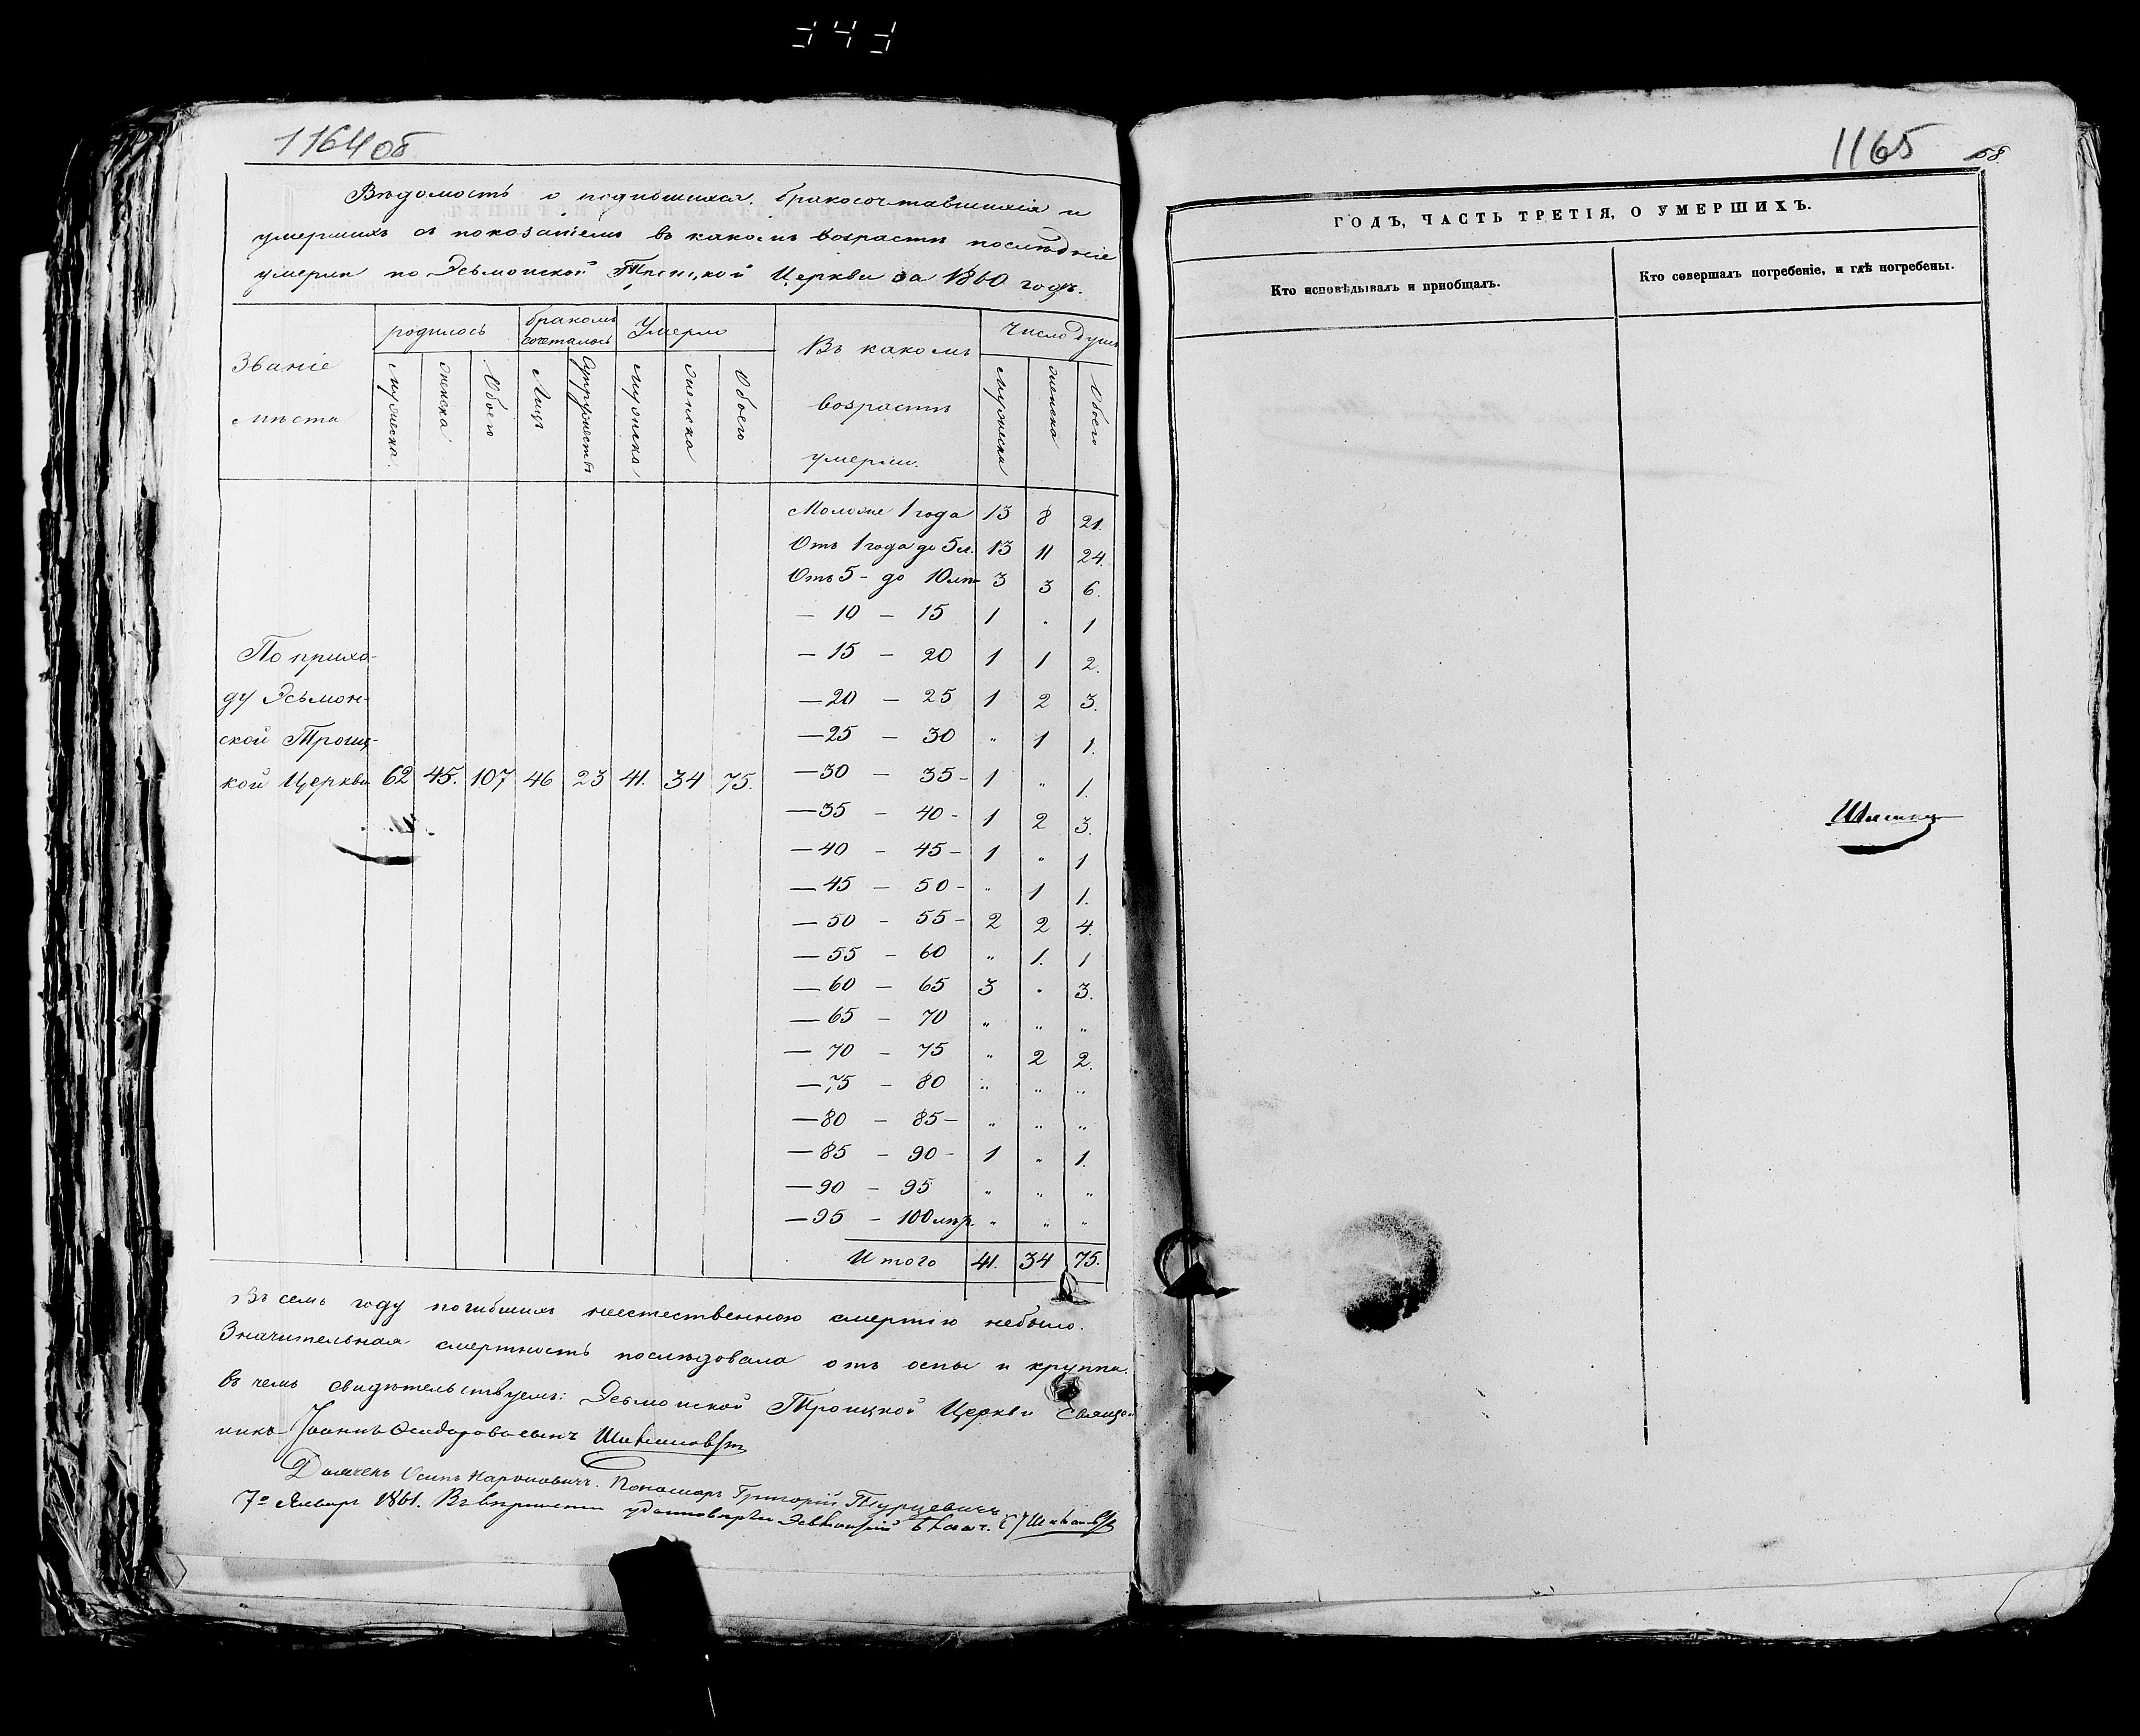 343
1164об
Вѣдомость о родившихся, бракосочетавшихся и
умершихъ съ показаніемъ въ какомъ возрастѣ послѣдніе
умерли по Эсьмонской Троицкой Церкви за 1860 годъ.
Званіе мѣста
родилось
бракомъ сочеталось
Умерло
Въ какомъ возрастѣ умерли.
Число душъ
мужеска женска Обоего Лицъ Супружествъ мужеска женска Обоего мужеска женска Обоего
Моложе 1 года 13 8 21.
Отъ 1 года до 5 л. 13 11 24.
Отъ 5 - до 10 лѣт 3 3 6.
— 10 — 15 1 . 1
— 15 — 20 1 1 2.
— 20 — 25 1 2 3.
— 25 — 30 " 1 1.
— 30 — 35 - 1 " 1.
— 35 - 40 - 1 2 3.
— 40 - 45 - 1 " 1
— 45 - 50 - " 1 1.
— 50 - 55 - 2 2 4.
— 55 - 60 " 1. 1
— 60 - 65 3 . 3.
— 65 - 70 " " "
— 70 - 75 " 2 2.
— 75 - 80 " " "
— 80 - 85 - " " "
— 85 - 90 - 1 " 1.
— 90 - 95 " " "
— 95 - 100 лѣт. " " "
Итого 41. 34 75.
По прихо-
ду Эсьмон-
ской Троиц-
кой Церкви 62 45. 107 46 23 41. 34 75.
Въ семъ году погибшихъ неестественною смертію небыло.
Значительная смертность послѣдовала отъ оспы и круппа.
въ чемъ свидѣтельствуемъ: Эсьмонской Троицкой Церкви Священ
никъ Іоаннъ Феодоровъ сынъ
Дьячекъ Осипъ Пономарь Григорій Турцевичъ
7го Январь 1861.
1165
68.
ГОДЪ, ЧАСТЬ ТРЕТІЯ, О УМЕРШИХЪ.
Кто исповѣдывалъ и приобщалъ.
Кто совершалъ погребеніе, и гдѣ погребены.